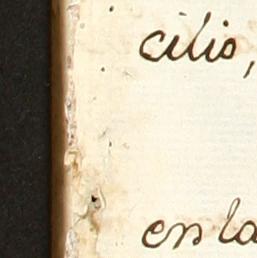 cilio,
en la